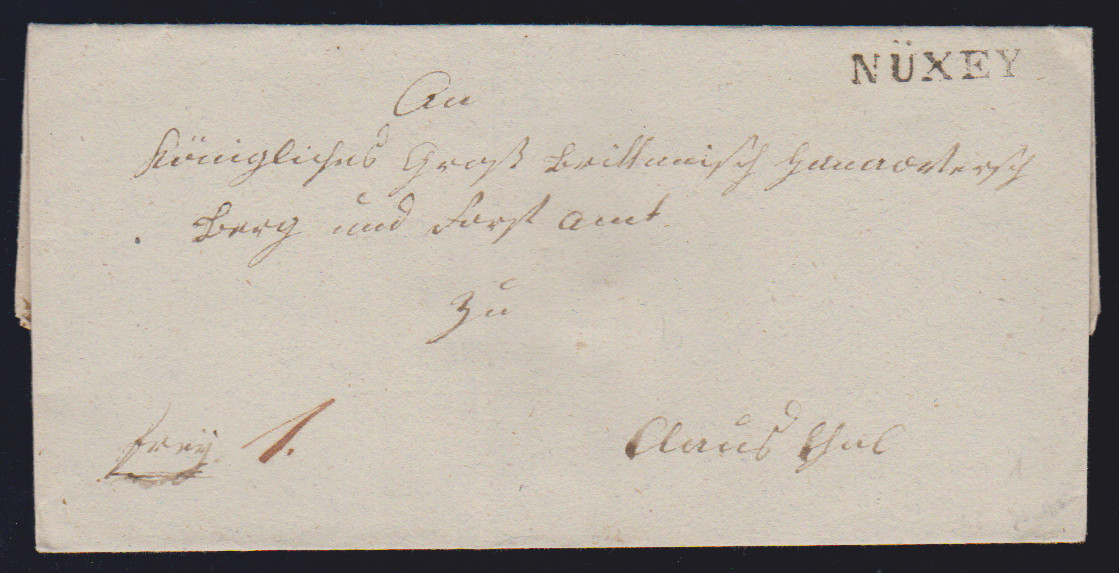 NÜXEY
An
Königliches Groß Brittannisch Hannoversch
Berg und Forst Amt
zu
frey 1.
Clausthal